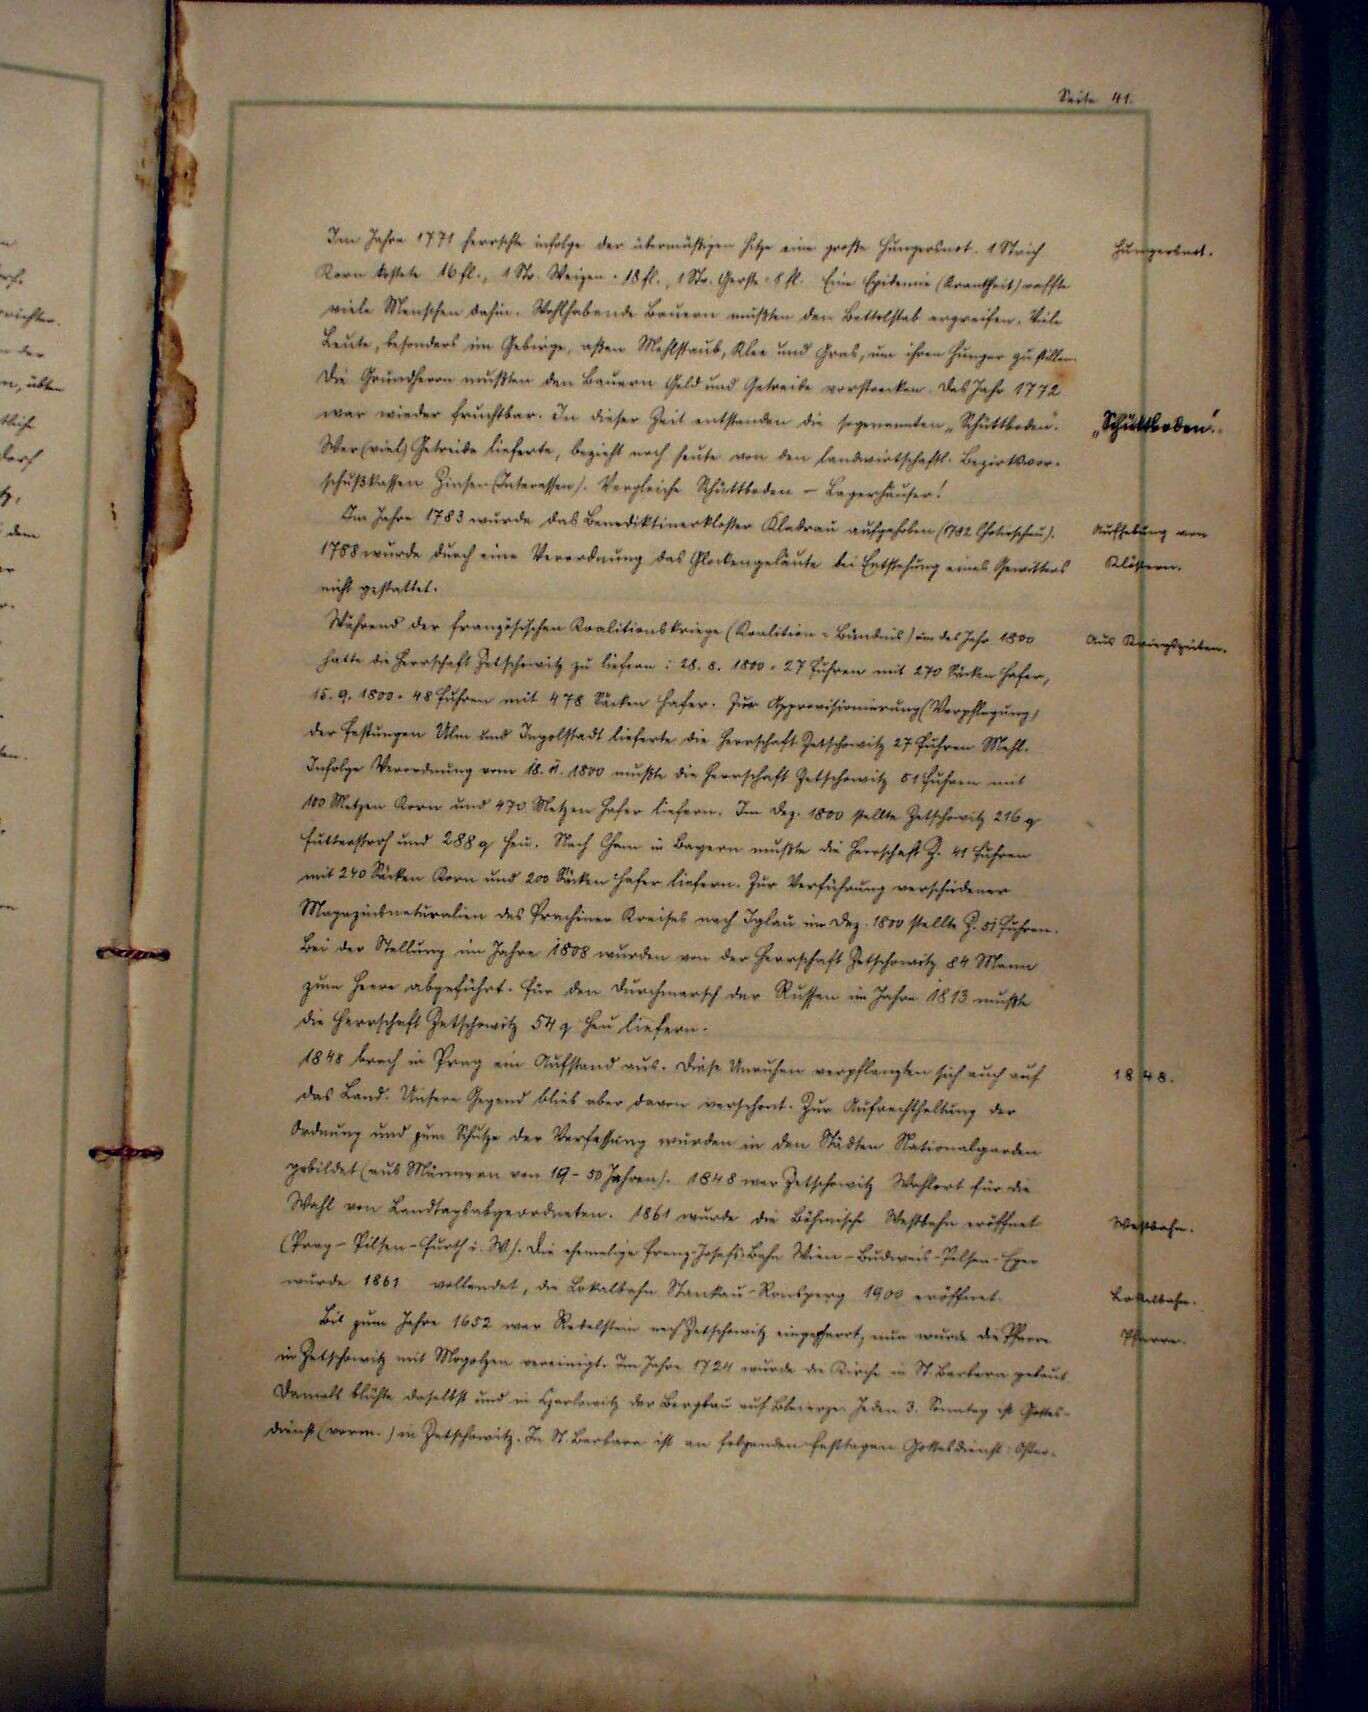 Seite 41.
Im Jahre 1771 herrschte infolge der übermäßigen Hitze eine große Hungersnot. 1 Strich
Hungersnot.
Korn kostete 16 fl., 1 Str. Weizen = 18 fl., 1 Str. Gerste = 8 fl. Eine Epidemie (Krankheit) raffte
viele Menschen dahin. Wohlhabende Bauern mußten den Bettelstab ergreifen. Viele
Leute, besonders im Gebirge, aßen Mehlstaub, Klee und Gras, um ihren Hunger zu stillen.
Die Grundherrn mußten den Bauern Geld und Getreide vorstrecken. Das Jahr 1772
war wieder fruchtbar. In dieser Zeit entstanden die sogenannten „Schüttboden".
„Schüttboden".
Wer (viel) Getreide lieferte, bezieht noch heute von den landwirtschaftl. Bezirksvor-
schußkassen Zinsen (Interessen). Vergleiche Schüttboden – Lagerhäuser!
Im Jahre 1783 wurde das Benediktinerkloster Kladrau aufgehoben (1782 Choteschau).
Aufhebung von
1788 wurde durch eine Verordnung das Glockengeläute bei Entstehung eines Gewitters
Klöstern.
nicht gestattet.
Während der französischen Koalitionskriege (Koalition = Bündnis) um das Jahr 1800
Aus Kriegszeiten.
hatte die Herrschaft Zetschowitz zu liefern: 28. 8. 1800 = 27 Fuhren mit 270 Säcken Hafer,
15. 9. 1800 = 48 Fuhren mit 478 Säcken Hafer. Zur Approvisionierung (Verpflegung)
der Festungen Ulm und Ingolstadt lieferte die Herrschaft Zetschowitz 27 Fuhren Mehl.
Infolge Verordnung vom 18. 11. 1800 mußte die Herrschaft Zetschowitz 51 Fuhren mit
100 Metzen Korn und 470 Metzen Hafer liefern. Im Dez. 1800 stellte Zetschowitz 216 q
Futterstroh und 288 q Heu. Nach Cham in Bayern mußte die Herrschaft Z. 41 Fuhren
mit 240 Säcken Korn und 200 Säcken Hafer liefern. Zur Verführung verschiedener
Magazinsnaturalien des Prachiner Kreises nach Iglau im Dez. 1800 stellte Z. 51 Fuhren.
Bei der Stellung im Jahre 1808 wurden von der Herrschaft Zetschowitz 84 Mann
zum Heere abgeführt. Für den Durchmarsch der Russen im Jahre 1813 mußte
die Herrschaft Zetschowitz 54 q Heu liefern.
1848 brach in Prag ein Aufstand aus. Diese Unruhen verpflanzten sich auch auf
1848.
das Land. Unsere Gegend blieb aber davon verschont. Zur Aufrechthaltung der
Ordnung und zum Schutze der Verfassung wurden in den Städten Nationalgarden
gebildet (aus Männern von 19 - 50 Jahren). 1848 war Zetschowitz Wahlort für die
Wahl von Landtagsabgeordneten. 1861 wurde die Böhmische Westbahn eröffnet
Westbahn.
(Prag – Pilsen – Furth i. W.). Die ehemalige Franz-Josefs-Bahn Wien – Budweis – Pilsen – Eger
wurde 1861 vollendet, die Lokalbahn Stankau – Ronsperg 1900 eröffnet.
Lokalbahn.
Bis zum Jahre 1652 war Rebelstein nach Zetschowitz eingepfarrt, nun wurde die Pfarre
Pfarre.
in Zetschowitz mit Mogolzen vereinigt. Im Jahre 1724 wurde die Kirche in St. Barbara gebaut
Damals blühte daselbst und in der Bergbau auf Bleierze. Jeden 3. Sonntag ist Gottes-
dienst (vorm.) in Zetschowitz. In St. Barbara ist an folgenden Festtagen Gottesdienst: Oster-